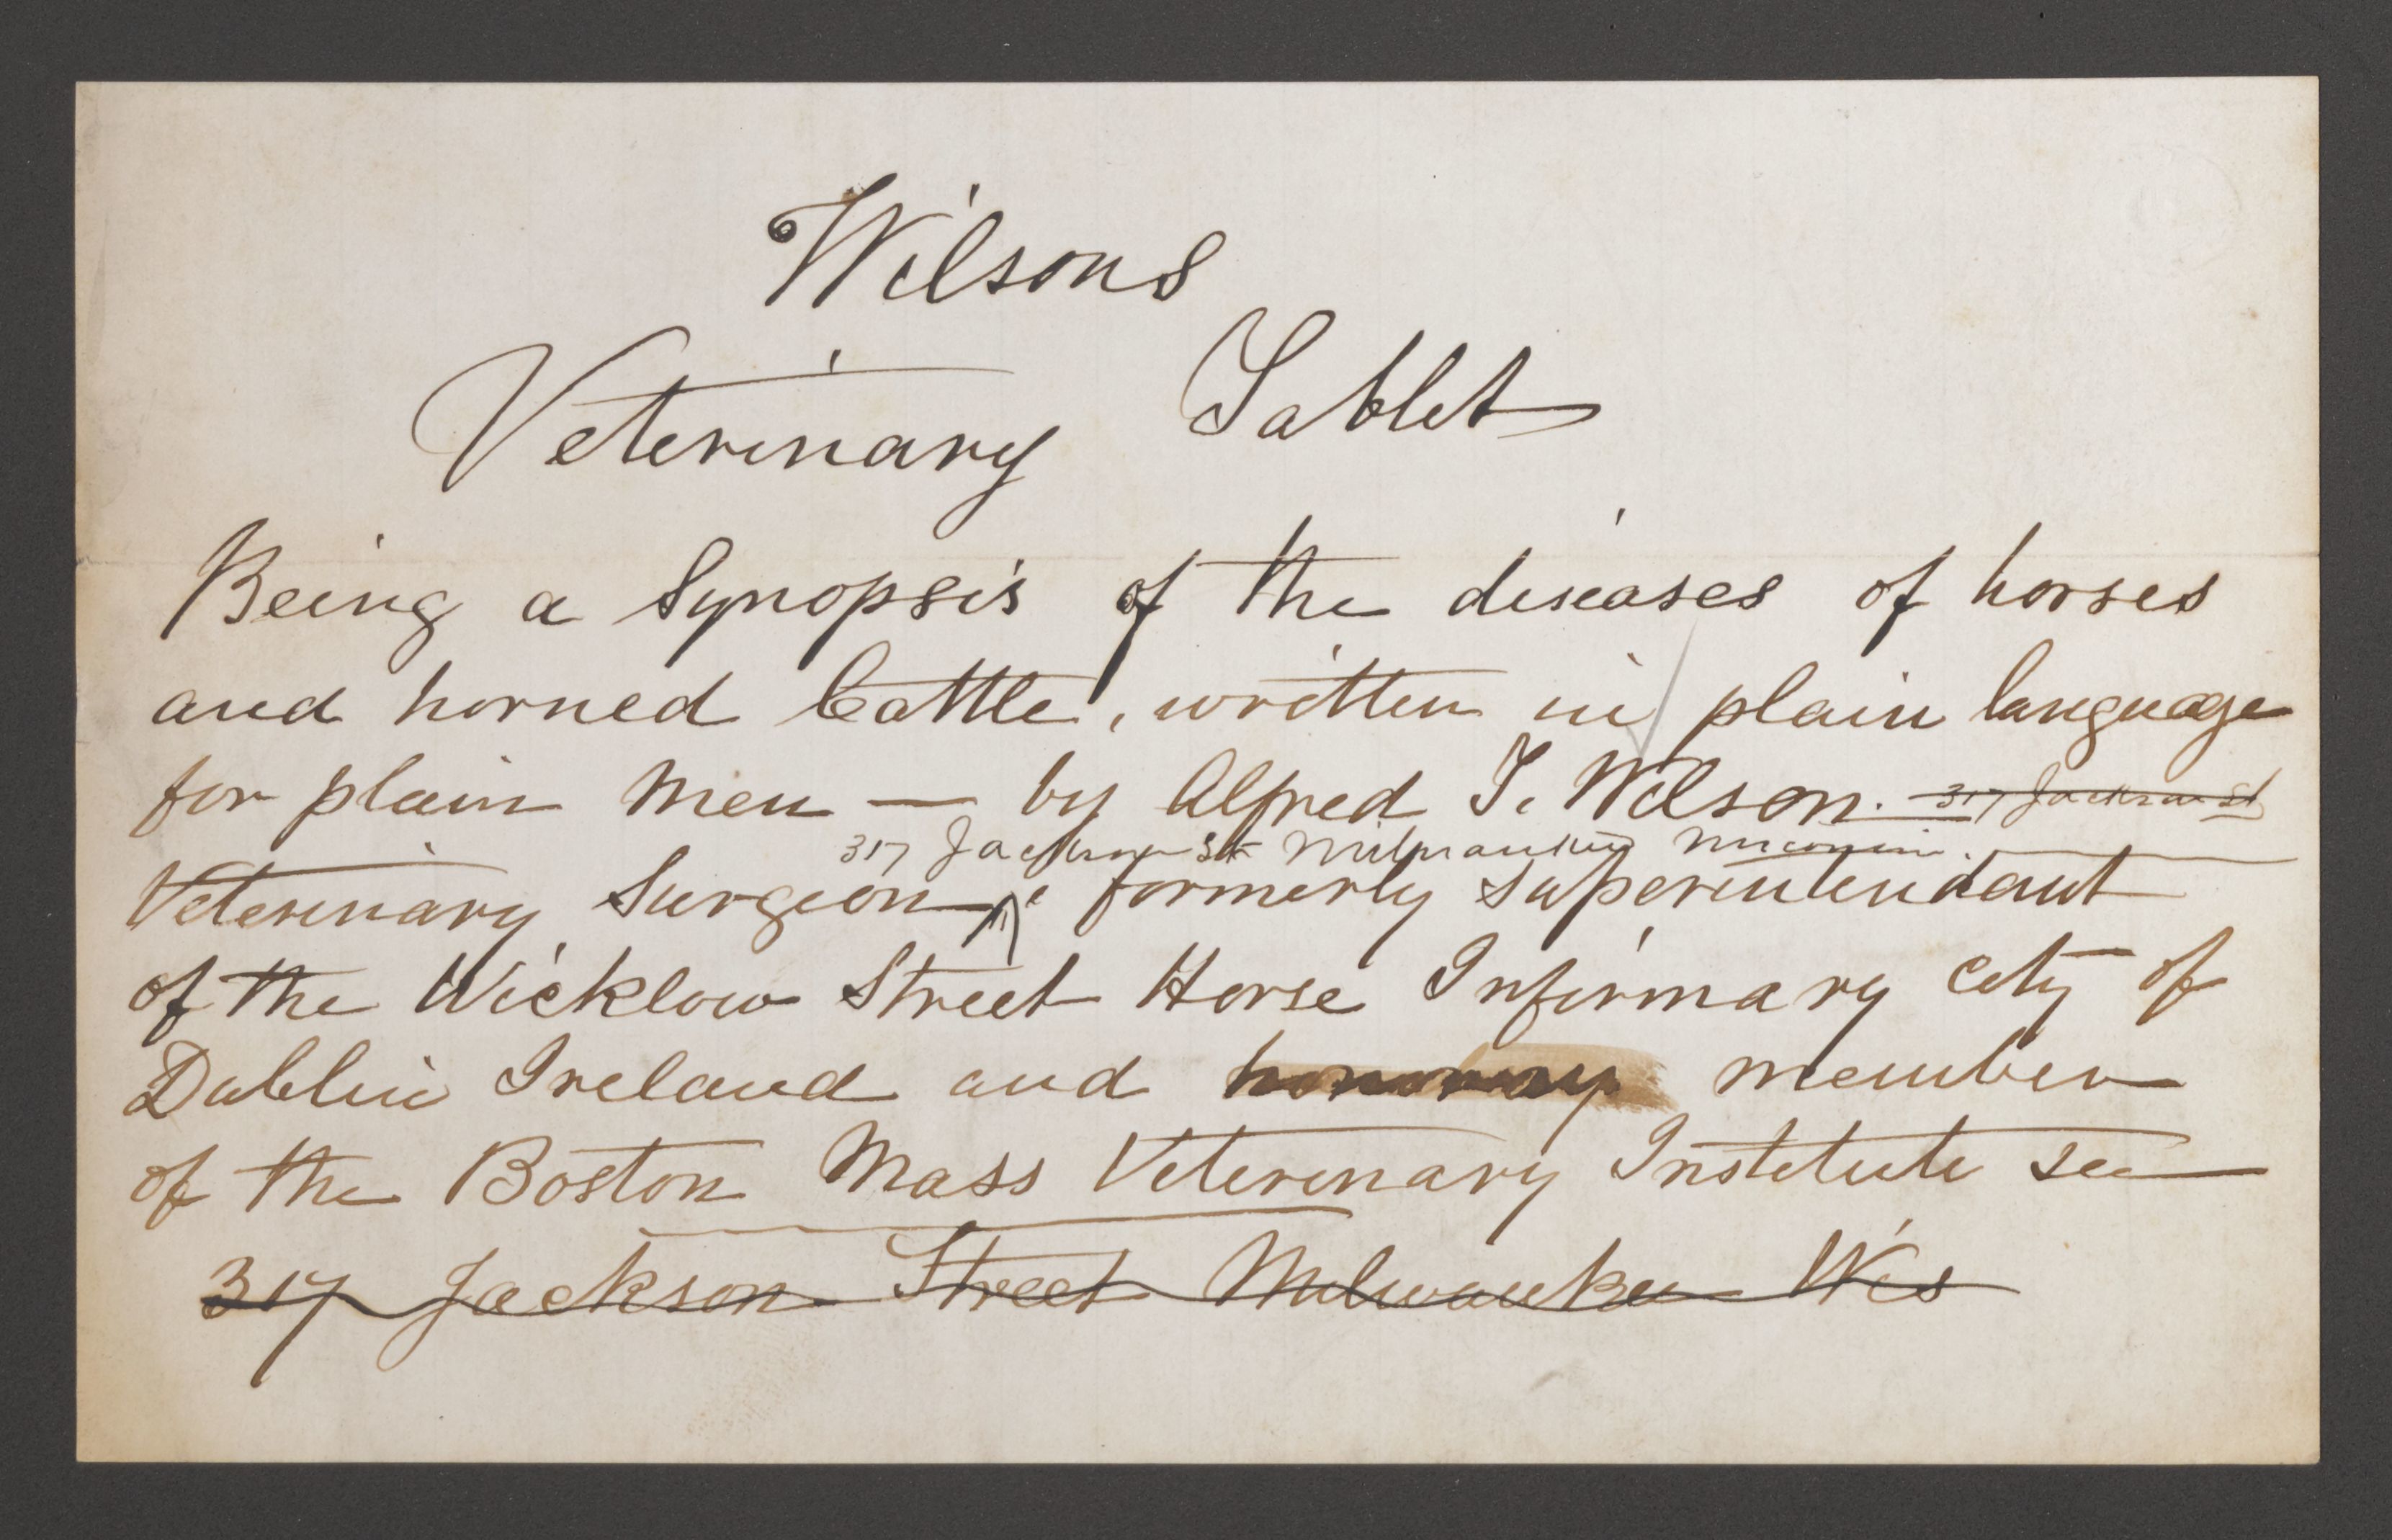 Wilsons
Veterinary Tablet
Being a Synopsis of the diseases of horses
and horned Cattle, written in plain language
for plain Men — by Alfred T. Wilson. 317 Jackson St
317 Jackson St Milwaukee Wisconsin.
Veterinary Surgeon, formerly superintendant
of the Wicklow Street Horse Infirmary City of
Dublin Ireland and honorary member
of the Boston Mass Veterinary Institute
317 Jackson Street Milwaukee Wis